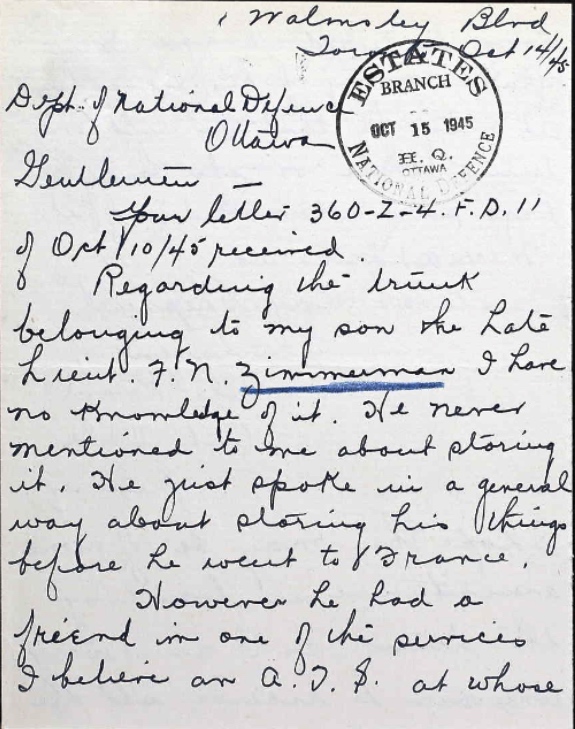 1 Walmsley Blvd
Toronto Oct 14/45
ESTATES
BRANCH
OCT 15 1945
H. Q.
OTTAWA
NATIONAL DEFENCE
Dept. of National Defence
Ottawa
Gentlemen —
Your letter 360-Z-4. F. D. 11
of Oct 10/45 received
Regarding the trunk
belonging to my son the late
Lieut. F. N. Zimmerman I have
no knowledge of it. He never
mentioned to me about storing
it. He just spoke in a general
way about storing his things
before he went to France.
However he had a
friend in one of the services
I believe an A. T. S. at whose